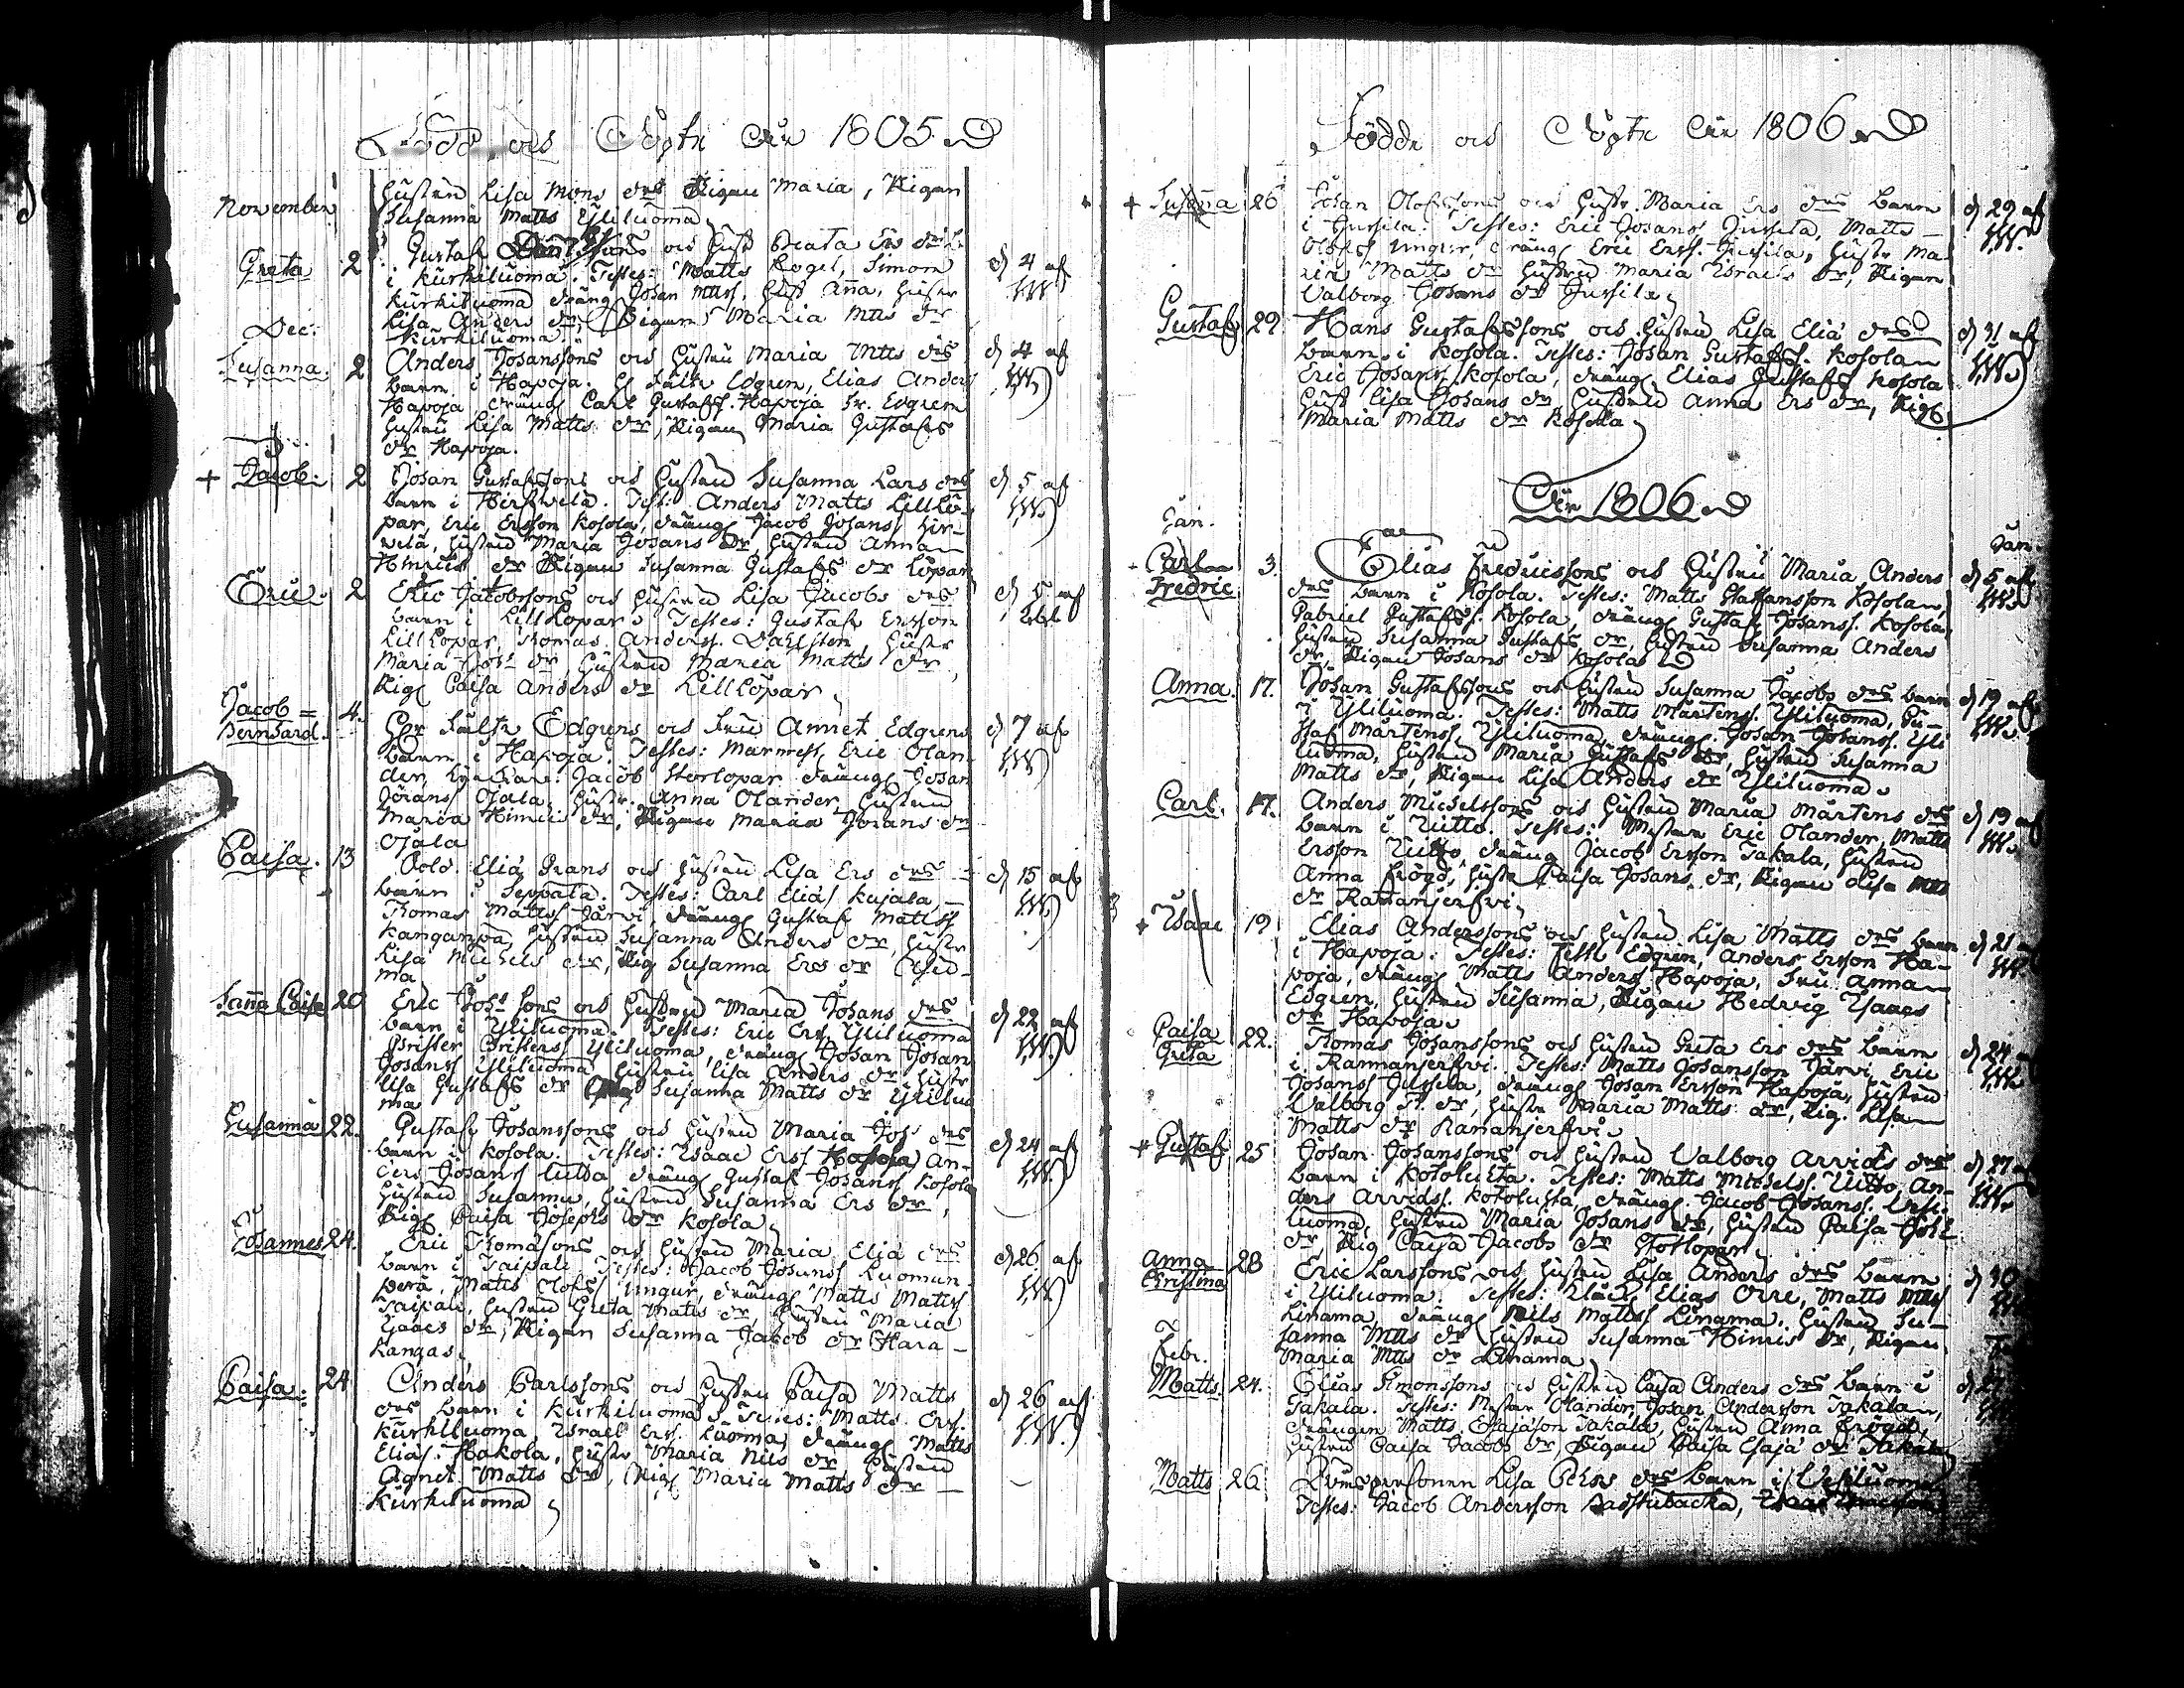 Född och Döpte År 1805
November
Hustrun Lisa Mons dr Pigan Maria, Pigan
Susanna Matts Yliluoma
Greta 2 Gustaf sons och Hust Beata Ers dr b.
i Kurkiluoma. Testes: Matts Kogel, Simon d 4 af
Kurkiluoma dräng Johan Mtts. Hust Anna, Hustr
Lisa Anders dr, Pigan Maria Mtts dr
Kurkiluoma.
Dec:
Susanna. 2 Anders Johanssons och Hustru Maria Mtts drs d 4 af
barn i Hapoja. H Fältr Edgren, Elias Anders
Hapoja dräng Carl Gustafs. Hapoja Fr. Edgren
Hustru Lisa Matts dr, Pigan Maria Gustafs
dr Hapoja.
+ Jacob. 2 Johan Gustafssons och Hustrun Susanna Lars drs d 5 af
barn i Hirswelä. Test: Anders Matts Lillkö-
par, Eric Ersson Kosola, dräng Jacob Johans Hir-
welä, Hustrun Maria Johans dr Hustrun Anna
Hinrics dr Pigan Susanna Gustafs dr Löpar
Eric. 2 Eric Jacobssons och Hustrun Lisa Jacobs drs d 5 af
barn i Lillköpar. Testes: Gustaf Ersson
Lillköpar, Thomas Anderss. Dahlsten, Hustr
Maria Johs dr, Hustrun Maria Matts dr,
Pig Caisa Anders dr Lillköpar
Jacob = 4. Herr Fältr Edgrens och Fru Annet Edgrens d 7 af
Bernhard. barn i Hapoja. Testes: Eric Olan-
der, Jacob Storlopar dräng Johan
Jörans Ojala, Hustr. Anna Olander Hustrun
Maria Hinric dr, Pigan Maria Jorans dr
Ojala
Caisa. 13 Sold. Eliä Grans och Hustru Lisa Ers drs d 15 af
barn i Seppälä. Testes: Carl Elias Kujala,
Thomas Mattss Järvi, dräng Gustaf Mattss
Kanganpä, Hustrun Susanna Anders dr, Hustr
Lisa Michels dr, Pig Susanna Ers dr
ma
Sanna Caisa 20 Eric Johs sons och Hustrun Maria Johans drs d 22 af
barn i Yliluoma. Testes: Eric Ers Yliluoma
Christer Christers Yliluoma, dräng Johan Johan
Johans Yliluoma Hustru Lisa Anders dr Hustr
Lisa Gustafs dr Susanna Matts dr Yliluo
ma
Susanna 22. Gustaf Johanssons och Hustrun Maria Johs drs d 24 af
barn i Kosola. Testes: Isaac Erss Hapoja, An-
ders Johanss Lulda dräng Gustaf Johans Kosola
Hustrun Susanna, Hustrun Susanna Ers dr,
Pig Caisa Josephs dr Kosola
Johannes 24. Eric Thomasons och Hustrun Maria Eliä drs d 26. af
barn i Taipale. Testes: Jacob Johanss Luoman-
perä, Matts Olofss Ungur, dräng Matts Mattss
Taipale, Hustrun Greta Matts dr, Hustru Maria
Isaacs dr, Pigan Susanna Jacob dr Hara-
kangas.
Caisa: 24 Anders Carlssons och Hustru Caisa Matts d 26 af
drs barn i Kurkiluoma. Testes: Matts Ers.
Kurkiluoma, Israel Ers. Luoma, dräng Matts
Elias. Hakola, Hustr Maria Nils dr Hustrun
Agnet. Matts dr, Pig Maria Matts dr
Kurkiluoma
Födde och Döpte År 1806
+ Susanna 26 Johan Olofssons och Hustr. Maria Ers drs barn d 29 af
i Jussila. Testes: Eric Johans Jussila, Matts
Olofss Ungur, dräng Eric Erss. Jussila, Hustr Ma-
ria Matts dr Hustrun Maria Israels dr, Pigan
Valborg Johans dr Jussila
Gustaf 29. Hans Gustafssons och Hustrun Lisa Eliä drs d 31 af
barn i Kosola. Testes: Johan Gustafss. Kosola
Eric Johanss Kosola, dräng Elias Gustafs Kosola
Hust Lisa Johans dr Hustrun Anna Ers dr, Pig
Maria Matts dr Kosola
År 1806
Jan. Jan.
Carl Fredric 3. Elias Fredricssons och Hustru Maria Anders d 5 af
drs barn i Kosola. Testes: Matts Staffansson Kosola
Gabriel Gustafss. Kosola, dräng Gustaf Johanss. Kosola
Hustrun Susanna Gustafs dr, Hustrun Susanna Anders
dr, Pigan Johans dr Kosola
Anna. 17. Johan Gustafssons och Hustru Susanna Jacobs drs barn d 19 af
i Yliluoma. Testes: Matts Mårtens. Yliluoma, Gu-
staf Mårtens, Yliluoma, dräng Johan Johanss. Yli
luoma, Hustrun Maria Gustafs dr, Hustrun Susanna
Matts dr, Pigan Lisa Anders dr Yliluoma
Carl. 17. Anders Michelssons och Hustrun Maria Mårtens drs d 19 af
barn i Uitto. Testes: Mestaren Eric Olander, Matts
Ersson Uitto, dräng Jacob Ersson Takala, Hustrun
Anna Frögd, Hustr Caisa Johans dr, Pigan Lisa Mtts
dr Ramanjerfwi
+ Isaac 19 Elias Anderssons och Hustrun Lisa Matts drs barn d 21
i Hapoja. Testes: Edgren, Anders Ersson Ha-
poja, dräng Matts Anders Hapoja, Fru Anna
Edgren, Hustrun Susanna, Pigan Hedvig Isaacs
dr Hapoja
Caisa Greta 22. Thomas Johanssons och Hustrun Greta Ers drs barn d 24
i Rammanjerfwi. Testes: Matts Johansson Järvi, Eric
Johanss Jussila, dräng Johan Ersson Hapoja, Hustrun
Valborg dr, Hustr Maria Matts dr, Pig. Lisa
Matts dr Ramanjerfwi
+ Gustaf 25 Johan Johanssons och Hustrun Valborg Arvids drs d 27
barn i Kotoluhta. Testes: Matts Michelss. Uitto, An-
ders Arvidss. Kotoluhta, dräng Jacob Johans. Wesi-
luoma, Hustrun Maria Johans dr, Hustrun Caisa Johs
dr Pig Caisa Jacobs dr Storlopar
Anna Christina 28 Eric Larssons och Hustrun Lisa Anders drs barn d 30
i Yliluoma. Testes: Elias Orre, Matts Mtts
Linama, dräng Nils Mattss Linama. Hustrun Su-
sanna Mtts dr Hustrun Susanna Hinrics dr, Pigan
Maria Mtts dr Linama
Febr.
Matts. 24. Elias Simonssons och Hustrun Caisa Anders drs barn i
Takala. Testes: Mestar Olander, Johan Andersson Takala,
drängen Matts Esajason Takala, Hustrun Anna Frögd,
Hustrun Caisa Jacobs dr Pigan Caisa Esajä dr Takala
Matts 26 Qvinspersonen Lisa Ersdrs barn i Wesiluoma
Testes: Jacob Andersson Badstubacka,